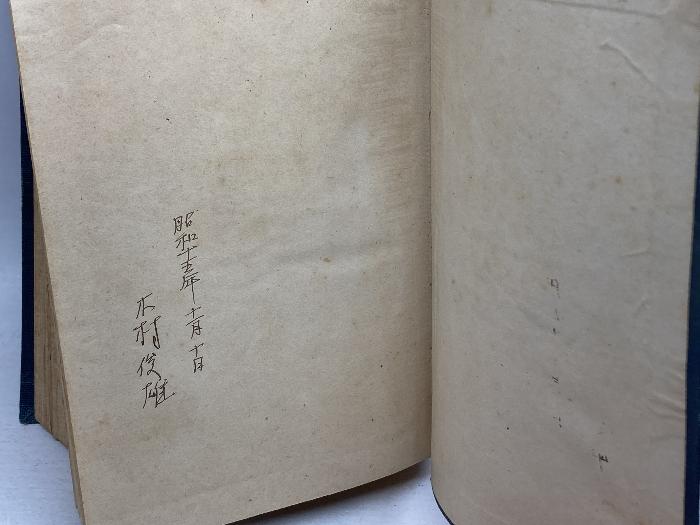 昭和十五年十二月十日
木村俊雄